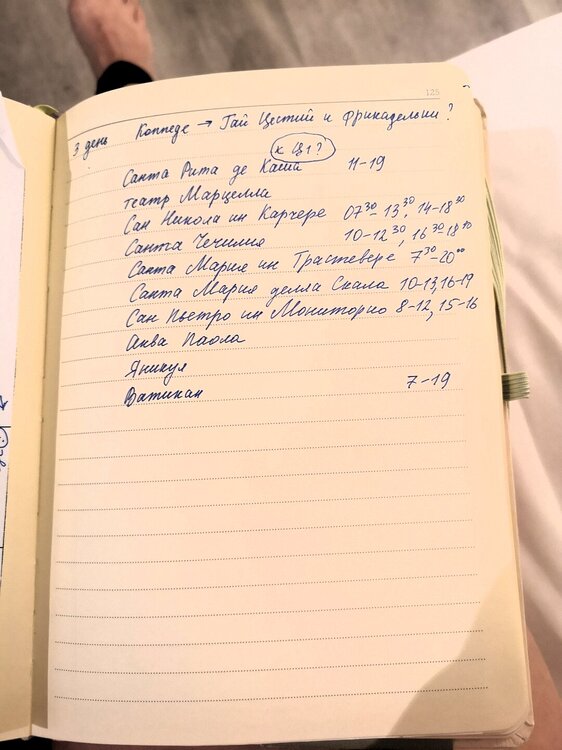 125
3 день Коппеде → Гай Цестий и Фрикадельки?
к Ц1?
Санта Рита де Каша 11-19
театр Марцелла
Сан Никола ин Карчере 07³⁰-13³⁰, 14-18³⁰
Санта Чечилия 10-12³⁰, 16³⁰-18³⁰
Санта Мария ин Трастевере 7³⁰-20⁰⁰
Санта Мария делла Скала 10-13, 16-19
Сан Пьетро ин Монторио 8-12, 15-16
Аква Паола
Яникул
Ватикан 7-19